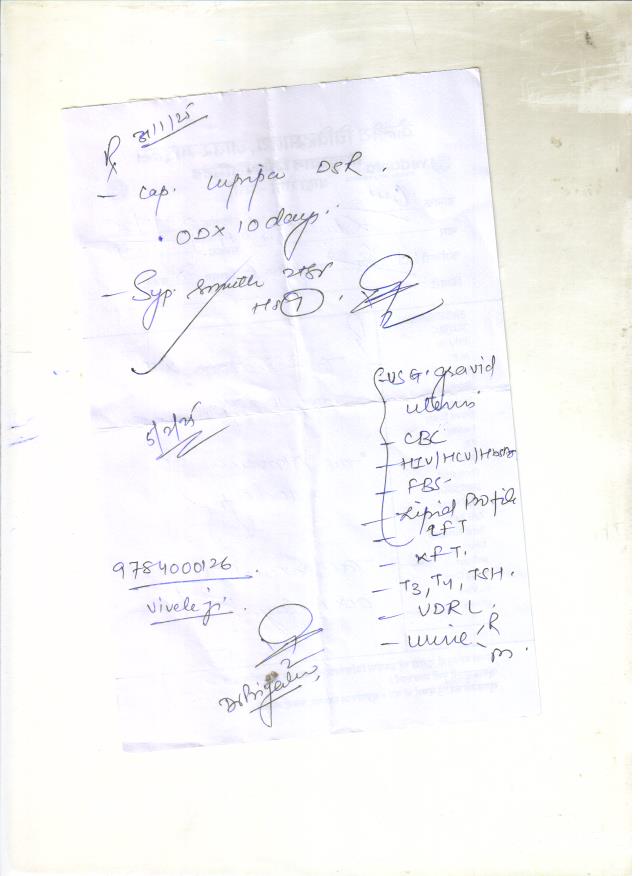 Rx
31/1/25
- Cap. Lupipa DSR.
. OD X 10 days.
- Syp. Smuth
HS
5/2/25
- USG. gravid
uterus
- CBC
- HIV/HCV/HbsAg
- FBS
- Lipid Profile
- LFT
- KFT.
- T3, T4, TSH.
- VDRL.
- Urine R
m
9784000126.
Vivek ji.